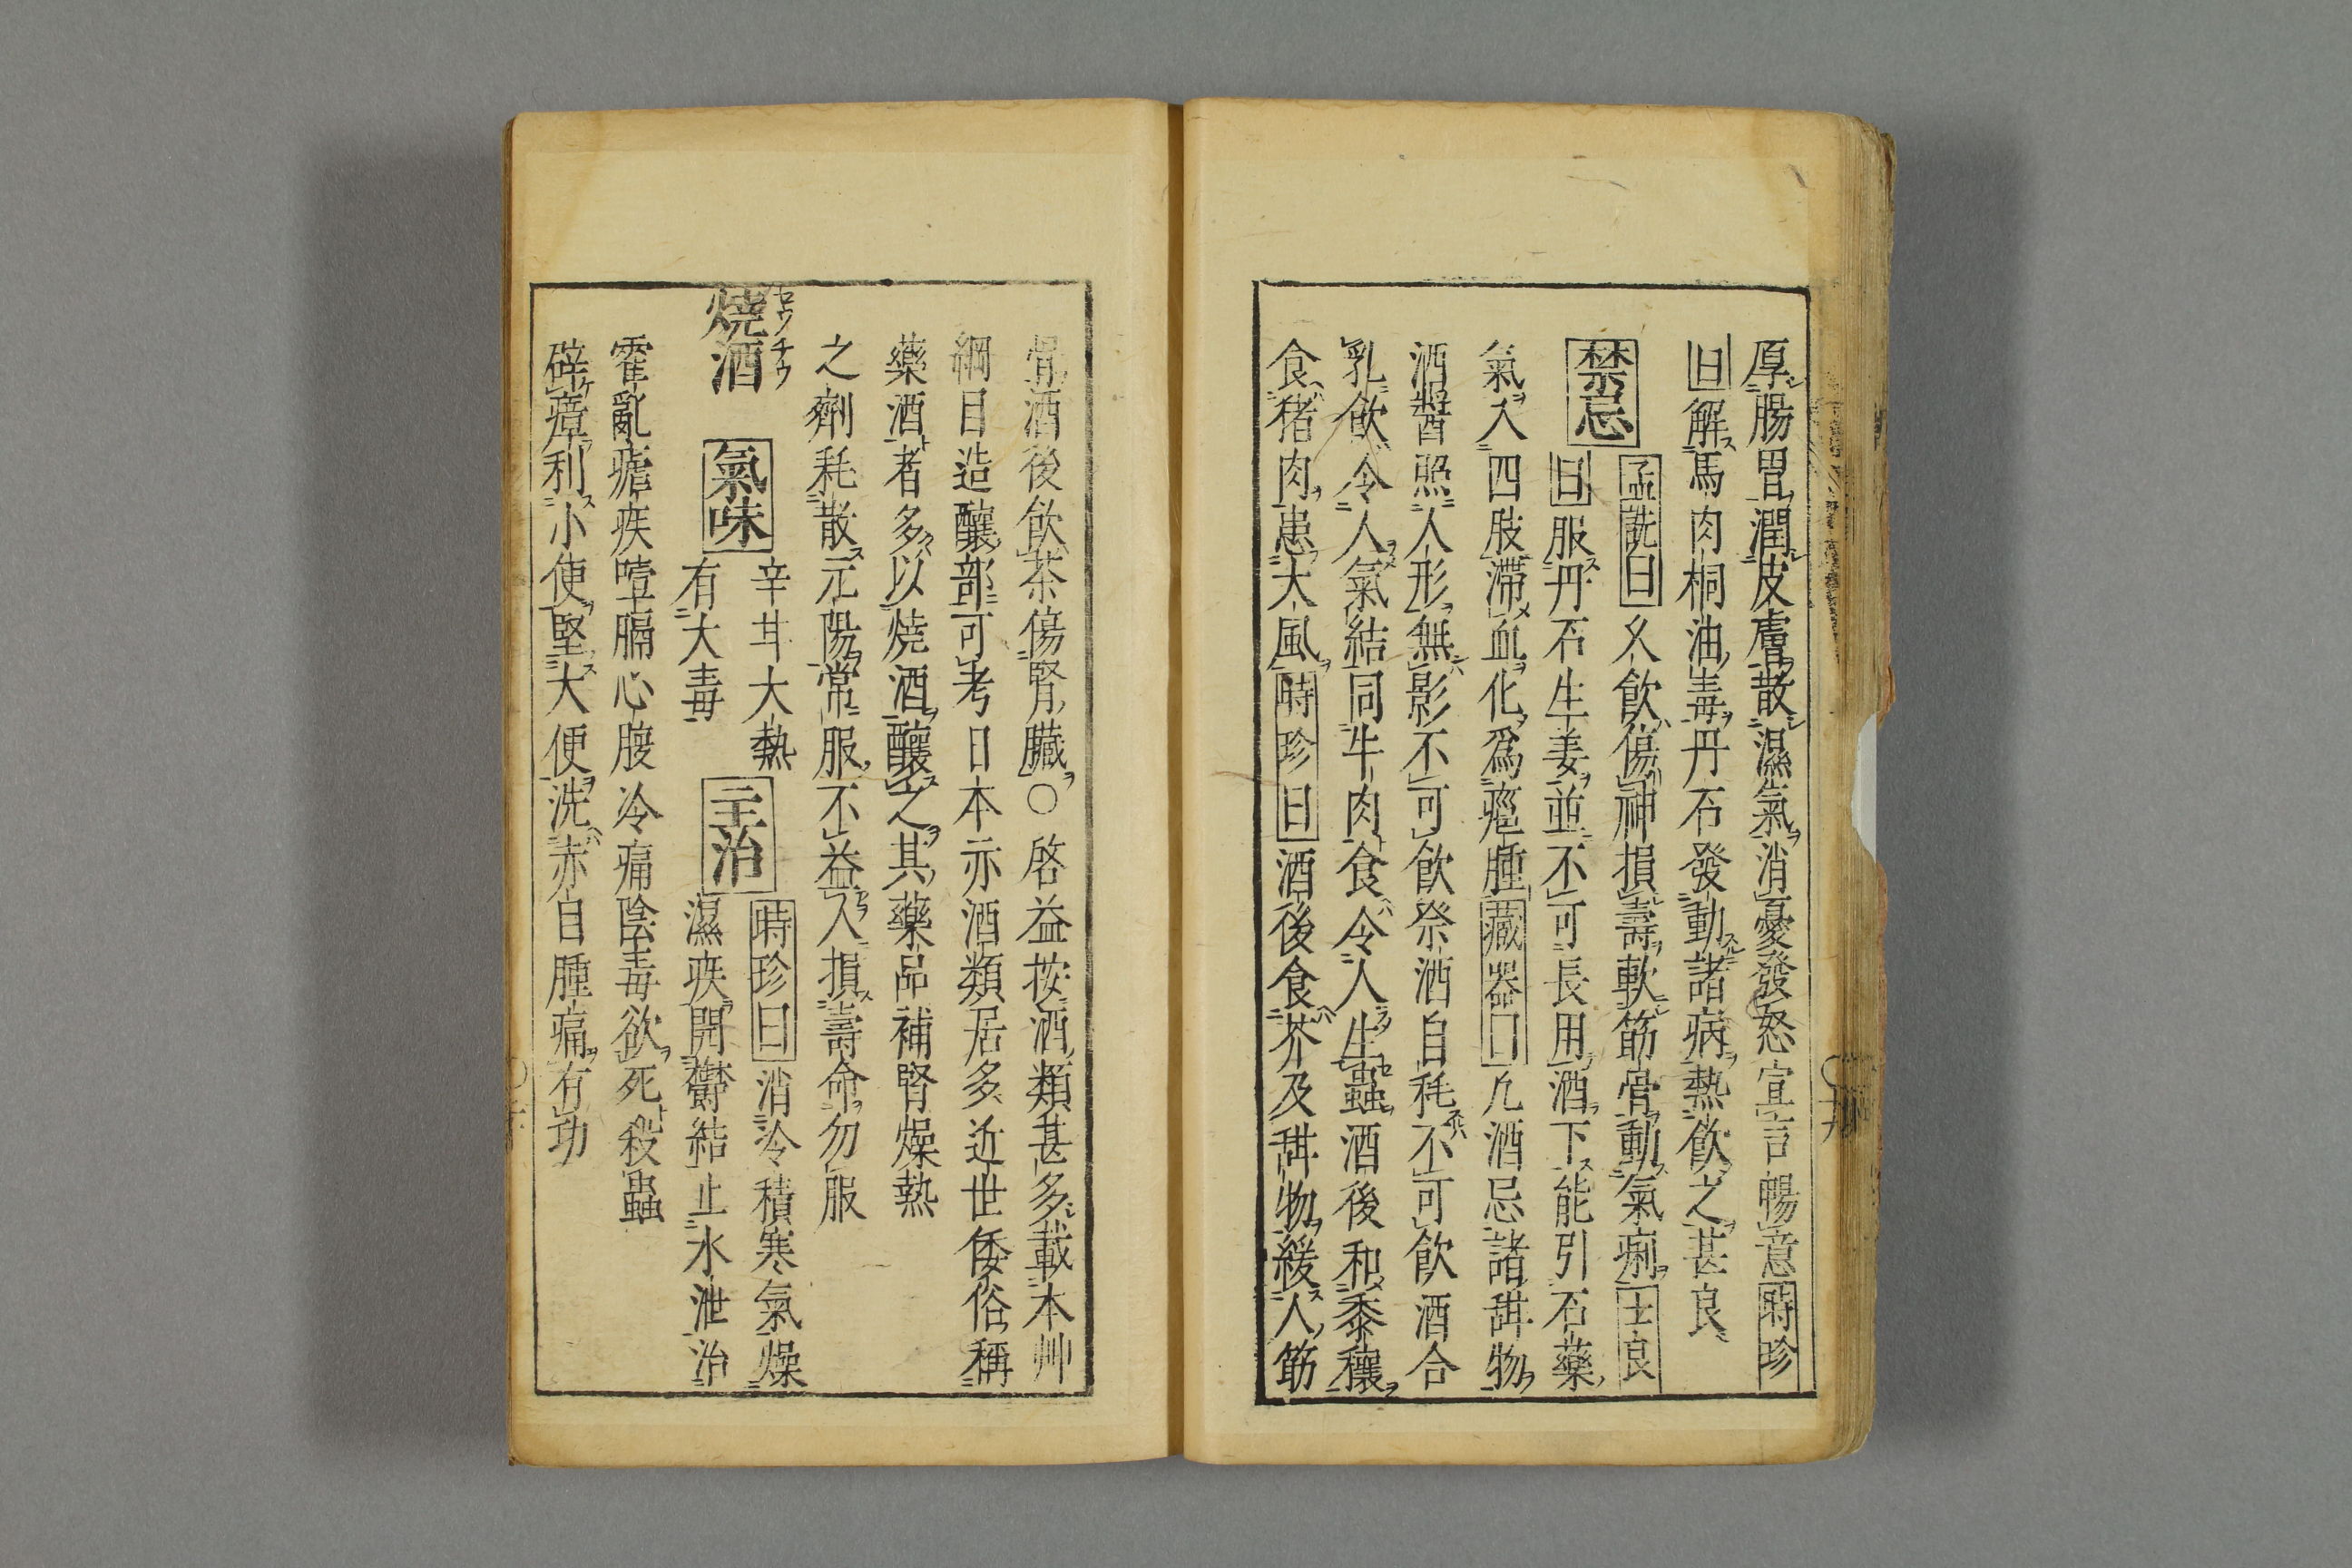 厚腸胃潤皮膚散濕氣消憂發怒宣言暢意時珍
曰解馬肉桐油毒丹石發動諸病熱飲之甚良
禁忌
孟詵曰久飲傷神損壽軟筋骨動氣痢士良
曰服丹石生姜並不可長用酒下能引石藥
氣入四肢滯血化爲癰腫藏器曰凡酒忌諸甜物
酒醬照人形無影不可飲祭酒自耗不可飲酒合
乳飲令人氣結同牛肉食令人生蟲酒後和黍穰
食猪肉患大風時珍曰酒後食芥及甜物緩人筋
骨酒後飲茶傷腎臟〇啓益按酒類甚多載本艸
綱目造釀部可考日本亦酒類居多近世倭俗稱
藥酒者多以燒酒釀之其藥品補腎燥熱
之劑耗散元陽常服不益人損壽命勿服
燒酒
セウチウ
氣味
辛甘大熱
有大毒
主治
時珍曰消冷積寒氣燥
濕疾開欝結止水泄治
霍亂瘧疾噎膈心腹冷痛陰毒欲死殺蟲
辟瘴利小便堅大便洗赤目腫痛有功